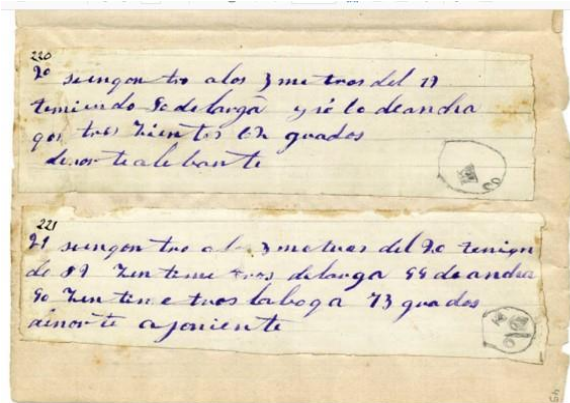 220
20 seengontro alos 3 metros del 19
teniendo 80 de larga y solo de ancha
por tres zientos 62 grados
denorte alebante
221
21 seengontro a los 3 metros del 20 tenien
de 89 zentimetros de larga 44 de ancha
90 zentimetros laboga 73 grados
denorte aponiente
64